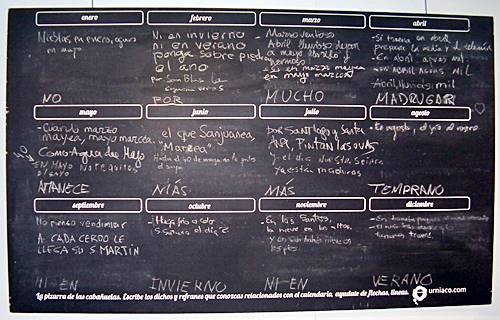 enero
Nicolás en enero, agua
en mayo
NO
febrero
Ni en invierno
ni en verano
ponga sobre piedra
el ano
Por San Blas la
cigüeña verás
POR
marzo
Marzo ventoso
Abril lluvioso dejan
a mayo florido y
hermoso
- Si en marzo mayea
en mayo marcea
MUCHO
abril
- Si truena en abril
prepara la
- En abril aguas mil
- EN ABRIL AGUAS MIL
Abril, lluvias mil
MADRUGAR
mayo
- Cuando marzo
mayea, mayo marcea.
Como Agua de Mayo
EN MAYO NO TE QUITES
EL SAYO
AMANECE
junio
el que Sanjuanea,
"Marzea"
Hasta el 40 de mayo no te quites
el sayo
MÁS
julio
por Santiago y Santa
Ana, PINTAN LAS UVAS
y el día Nuestra Señora
ya están maduras
MAS
agosto
- En agosto, el frío al rostro
TEMPRANO
septiembre
No pienso vendimiar
A CADA CERDO LE
LLEGA SU S MARTÍN
NI EN
octubre
INVIERNO
noviembre
En los Santos,
la nieve en los altos,
NI EN
diciembre
VERANO
La pizarra de las cabañuelas. Escribe los dichos y refranes que conozcas relacionados con el calendario, ayudate de flechas, lineas.
urniaco.com